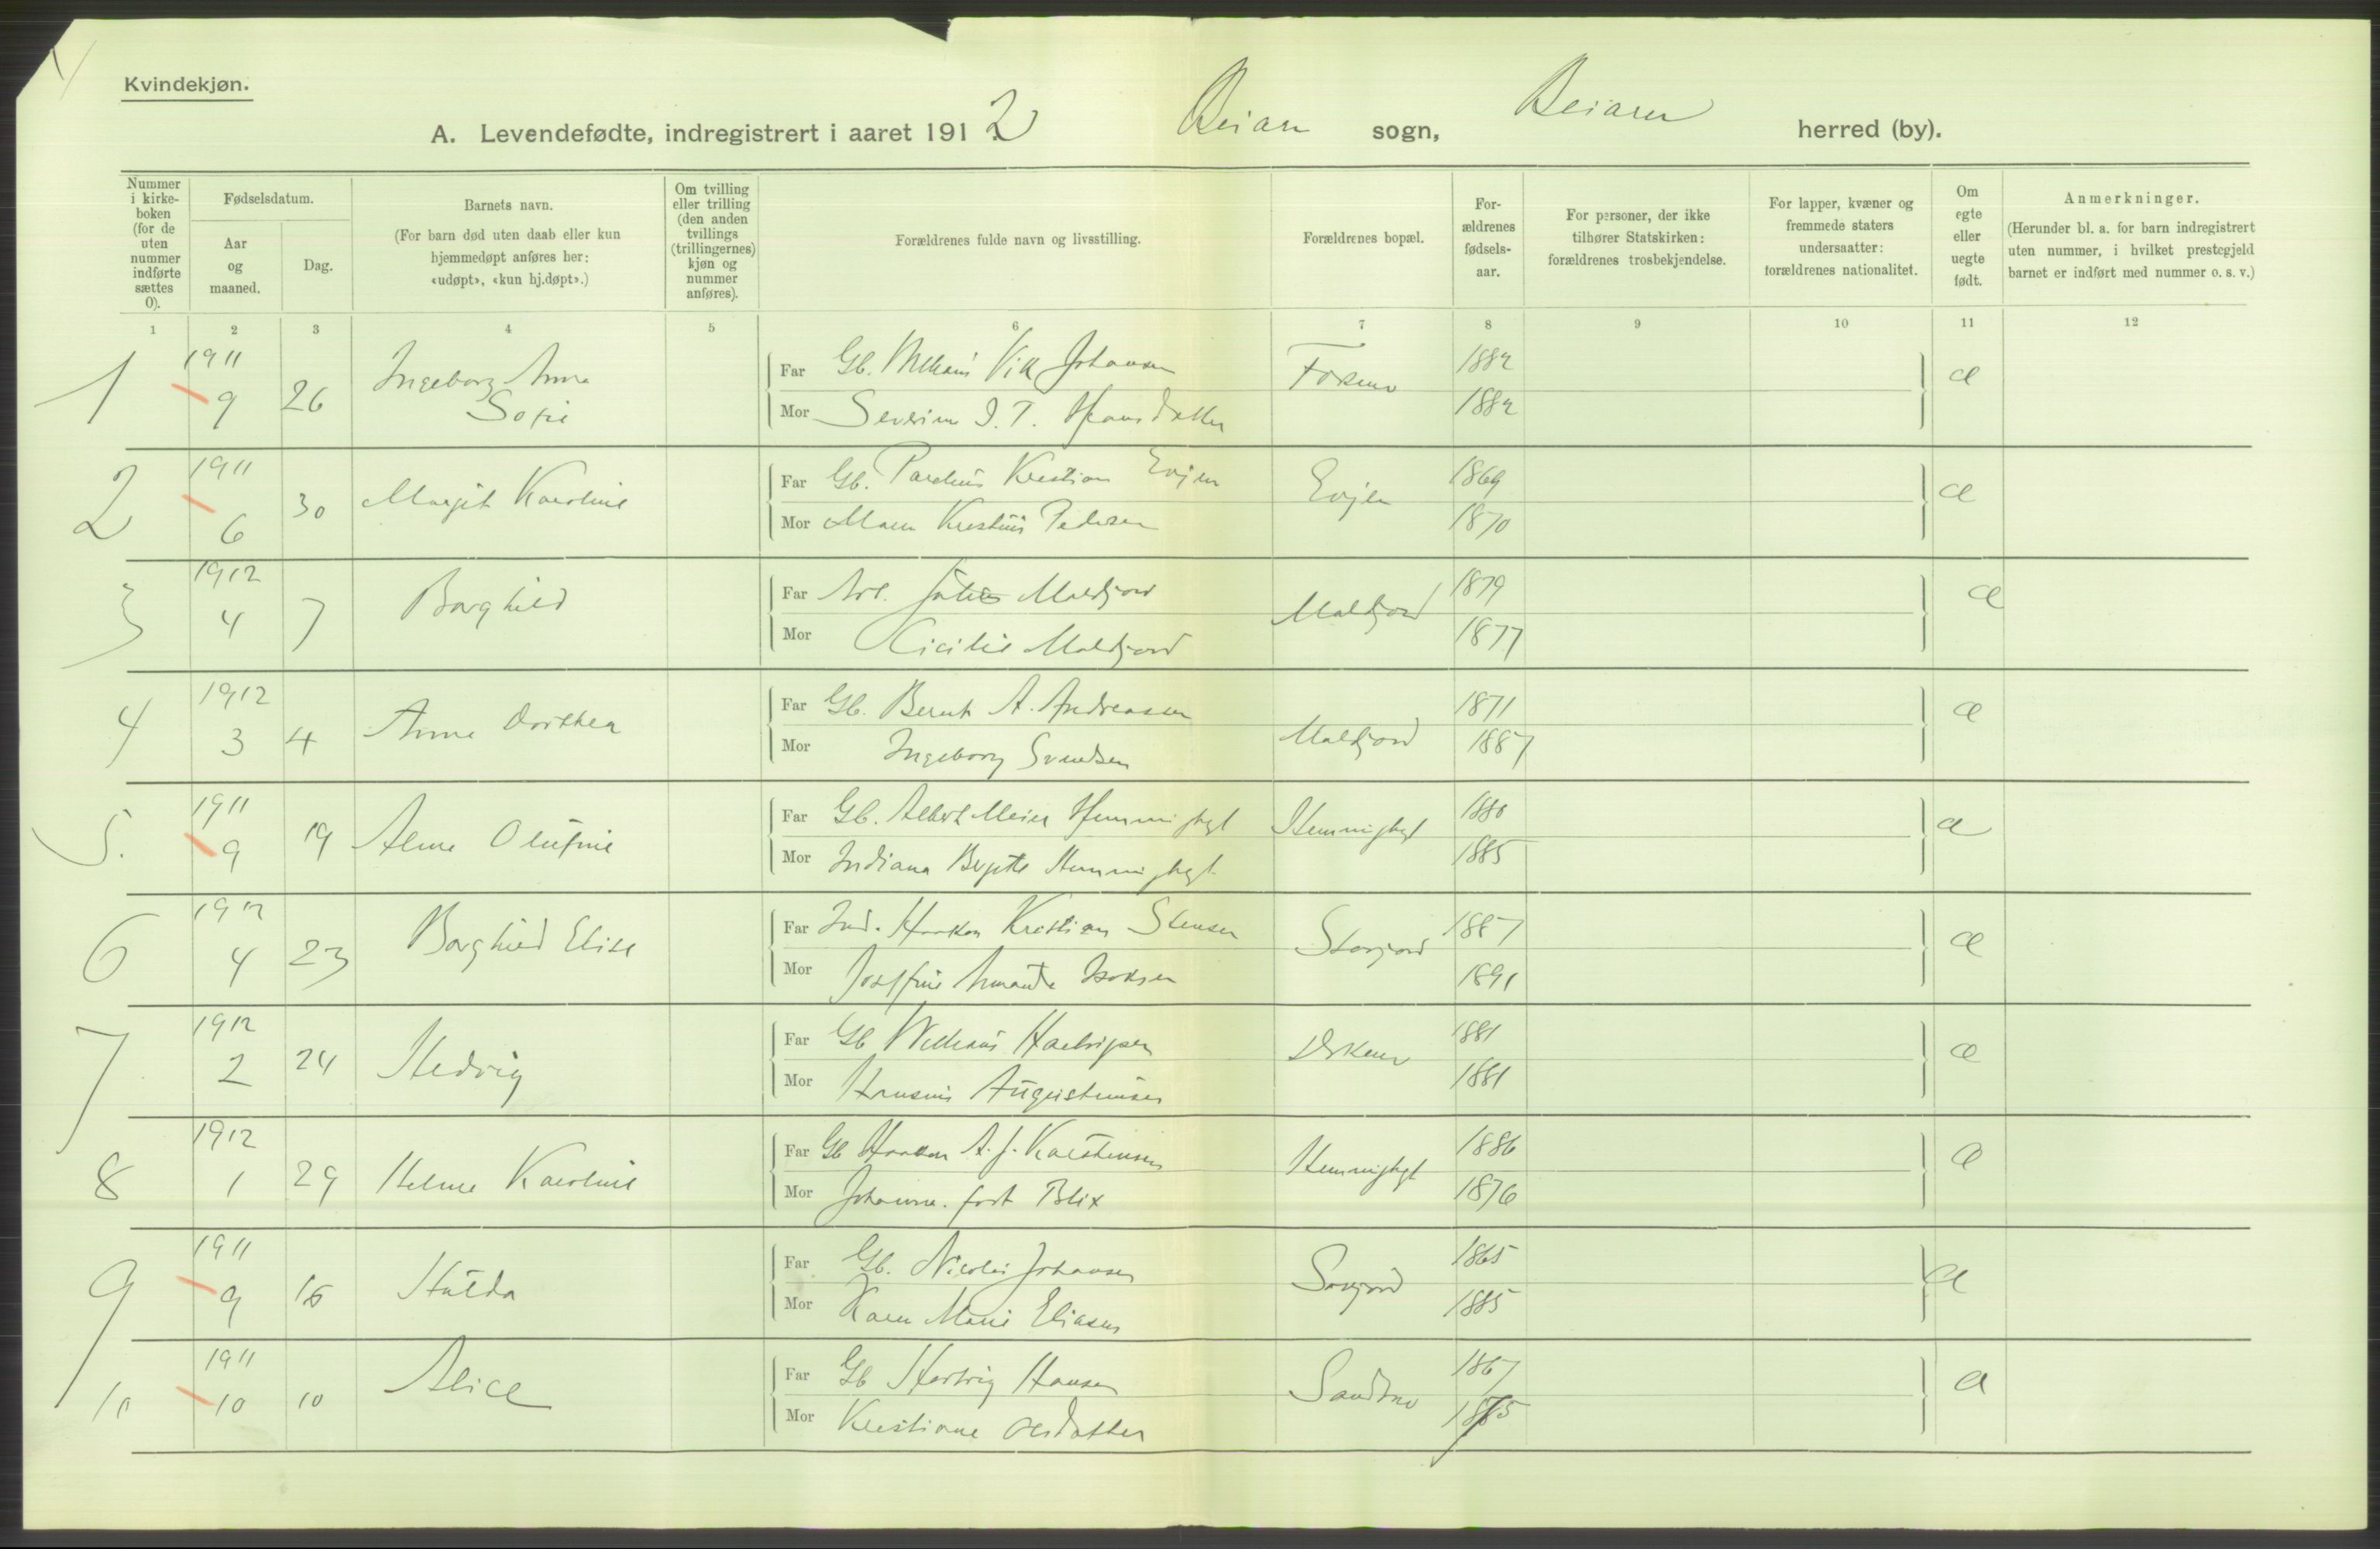 Kvindekjøn.
A. Levendefødte, indregistrert i aaret 1912 Beiarn sogn, Beiarn herred (by).
Nummer i kirkeboken (for de uten nummer indførte sættes 0).
Fødselsdatum.
Aar og maaned.
Dag.
Barnets navn.
(For barn død uten daab eller kun hjemmedøpt anføres her: «udøpt», «kun hj.døpt».)
Om tvilling eller trilling (den anden tvillings (trillingernes) kjøn og nummer anføres).
Forældrenes fulde navn og livsstilling.
Forældrenes bopæl.
Forældrenes fødselsaar.
For personer, der ikke tilhører Statskirken: forældrenes trosbekjendelse.
For lapper, kvæner og fremmede staters undersaatter: forældrenes nationalitet.
Om egte eller uegte født.
Anmerkninger.
(Herunder bl. a. for barn indregistrert uten nummer, i hvilket prestegjeld barnet er indført med nummer o. s. v.)
1 2 3 4 5 6 7 8 9 10 11 12
1 1911 9 26 Ingeborg Anna Sofie
Far Gb. Johansen 1882 æ
Mor Severine J. T. Hansdatter 1882
2 1911 6 30 Margit Karoline
Far Gb. Parelius Kristian Evjen Evjen 1869 æ
Mor Maren Kristine Pedersen 1870
3 1912 4 7 Borghild
Far Arb. Julius Moldjord Moldjord 1879 æ
Mor Cicilie Moldjord 1877
4 1912 3 4 Anna Dorthea
Far Gb. Bernt A. Andreassen Moldjord 1871 æ
Mor Ingeborg Svendsen 1887
5. 1911 9 19 Alma Olufine
Far Gb. Albert Meier 1880 æ
Mor Indiana 1885
6 1912 4 23 Borghild Elise
Far Ind. Haakon Kristian Stensen Storjord 1887 æ
Mor Josefine Amanda Isaksen 1891
7 1912 2 24 Hedvig
Far Gb 1881 æ
Mor Augustinusen 1881
8 1912 1 29 Helma Karoline
Far Gb Haakon A. J. Karstensen 1886 æ
Mor Johanna. født Blix 1876
9 1911 9 16 Hulda
Far Gb. Nicolai Johansen 1865 æ
Mor Karen Marie Eliasen 1885
10 1911 10 10 Alice
Far Gb Hartvig Hansen Sandmo 1867 æ
Mor Kristiane Olsdatter 1875